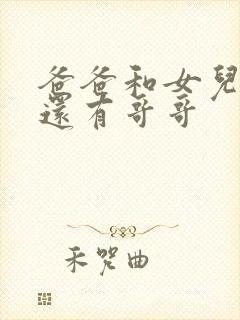 爸爸和女兒
還有哥哥
禾咒曲